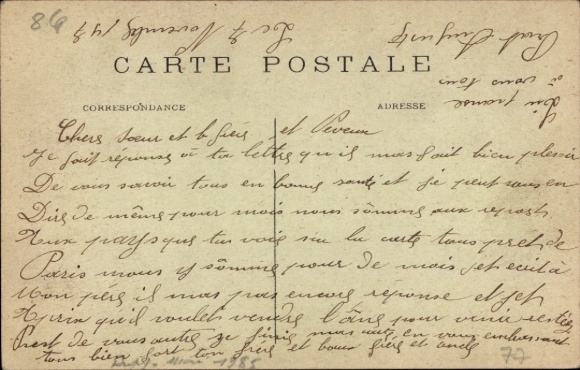 86
Le 7 Novembre 1917
CARTE POSTALE
CORRESPONDANCE
ADRESSE
Chers sœur et b frère et Neveux
Je fait réponse à ta lettre qu'il mas fait bien plesir
De vous savoir tous en bonne santé et je peut vous en
Dire de même pour mois nous sômme aux repos
Aux pays que tu vois sur la carte tous pret de
Paris nous y sômme pour de mois jet ecrit à
Mon père il mas pas encore réponse et jet
apris qu'il voulet vendre l'âne pour venir restée
Prest de vous autre je finis mas carte en vous embrassant
tous bien fort ton frère et beau frère et oncle
à vous tous
77